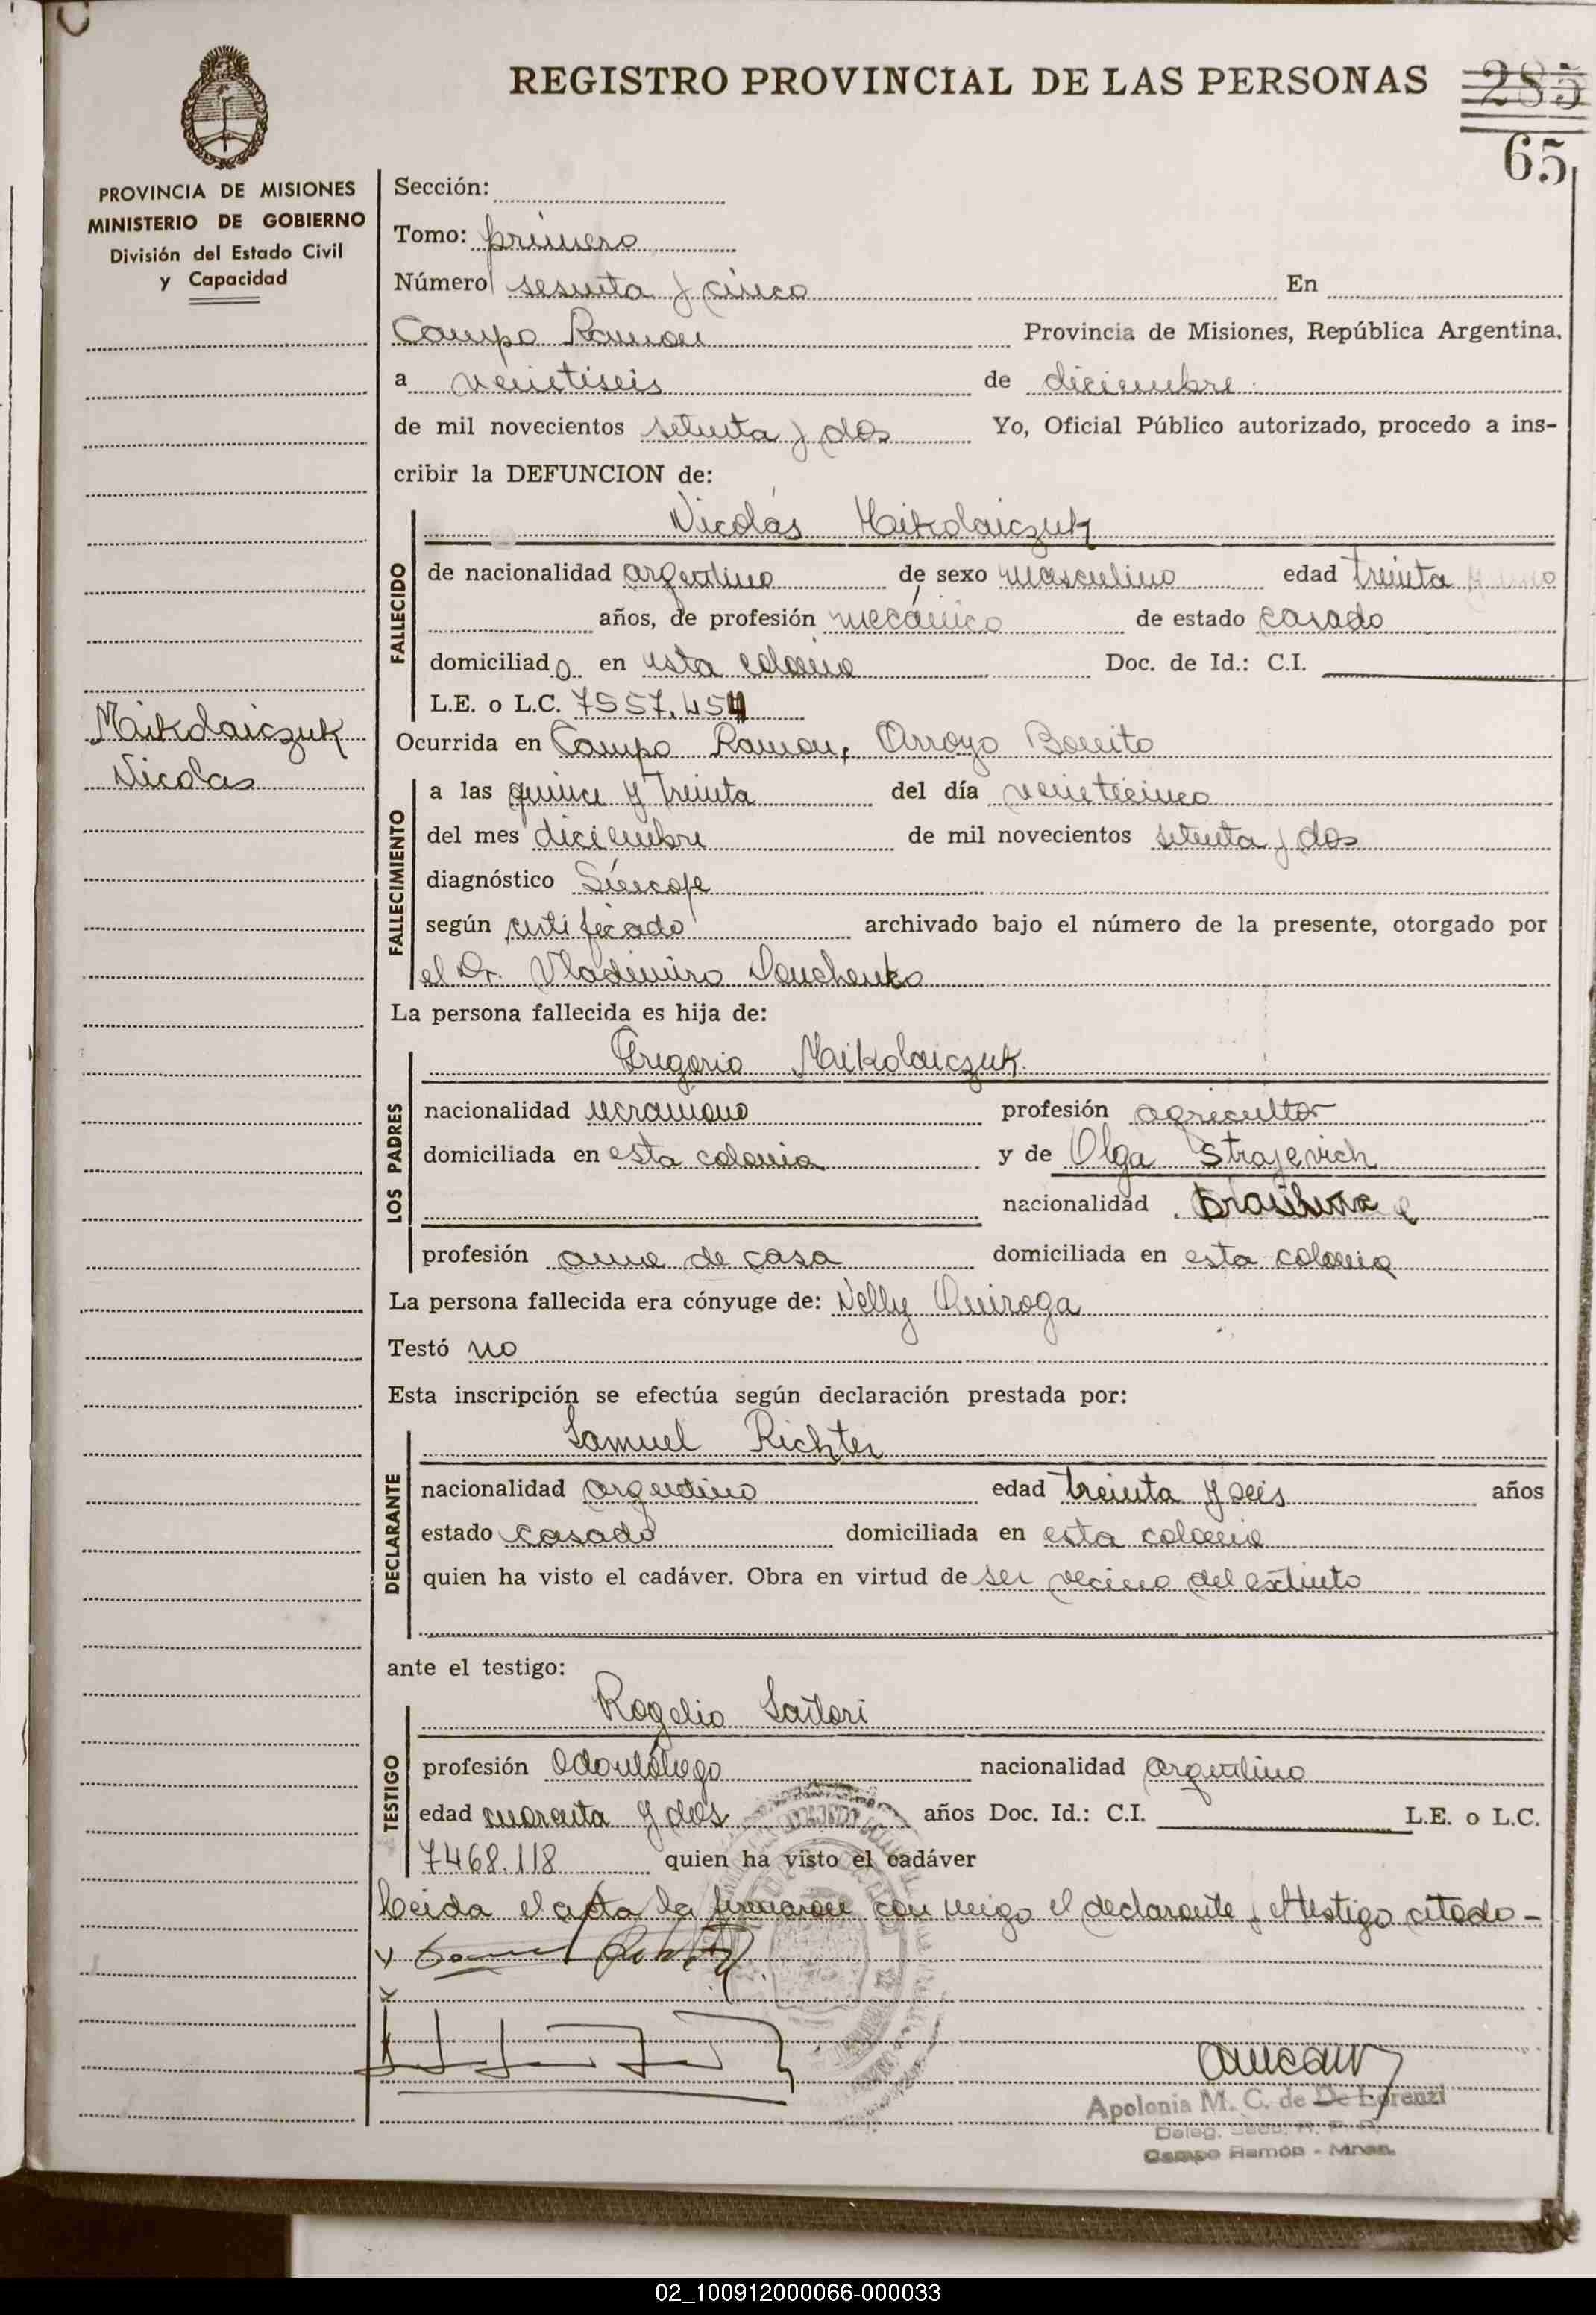 REGISTRO PROVINCIAL DE LAS PERSONAS
285
65
PROVINCIA DE MISIONES
MINISTERIO DE GOBIERNO
División del Estado Civil
y Capacidad
Sección:
Tomo: primero
Número sesenta y cinco En
Campo Ramon Provincia de Misiones, República Argentina,
a veintiseis de diciembre
de mil novecientos setenta y dos Yo, Oficial Público autorizado, procedo a ins-
cribir la DEFUNCION de:
Nicolás Mikolaiczuk
FALLECIDO
de nacionalidad argentino de sexo masculino edad treinta y uno
años, de profesión mecánico de estado casado
domiciliado en esta colonia Doc. de Id.: C.I.
L.E. o L.C. 7557.454
Mikolaiczuk
Nicolas
Ocurrida en Campo Ramon, Arroyo Bonito
FALLECIMIENTO
a las quince y treinta del día veinticinco
del mes diciembre de mil novecientos setenta y dos
diagnóstico Síncope
según certificado archivado bajo el número de la presente, otorgado por
el Dr. Vladimiro
La persona fallecida es hija de:
Gregorio Mikolaiczuk
LOS PADRES
nacionalidad ucraniano profesión agricultor
domiciliada en esta colonia y de Olga Strajevich
nacionalidad brasilera
profesión ama de casa domiciliada en esta colonia
La persona fallecida era cónyuge de: Nelly Quiroga
Testó no
Esta inscripción se efectúa según declaración prestada por:
Samuel Richter
DECLARANTE
nacionalidad argentino edad treinta y seis años
estado casado domiciliada en esta colonia
quien ha visto el cadáver. Obra en virtud de ser vecino del extinto
ante el testigo:
Rogelio Sartori
TESTIGO
profesión Odontólogo nacionalidad argentino
edad cuarenta y dos años Doc. Id.: C.I. L.E. o L.C.
7468.118 quien ha visto el cadáver
Leida el acta la firmaron con migo el declarante y el testigo citado -
Apolonia M. C. de De Lorenzi
Campo Ramón - Mnes.
02_100912000066-000033